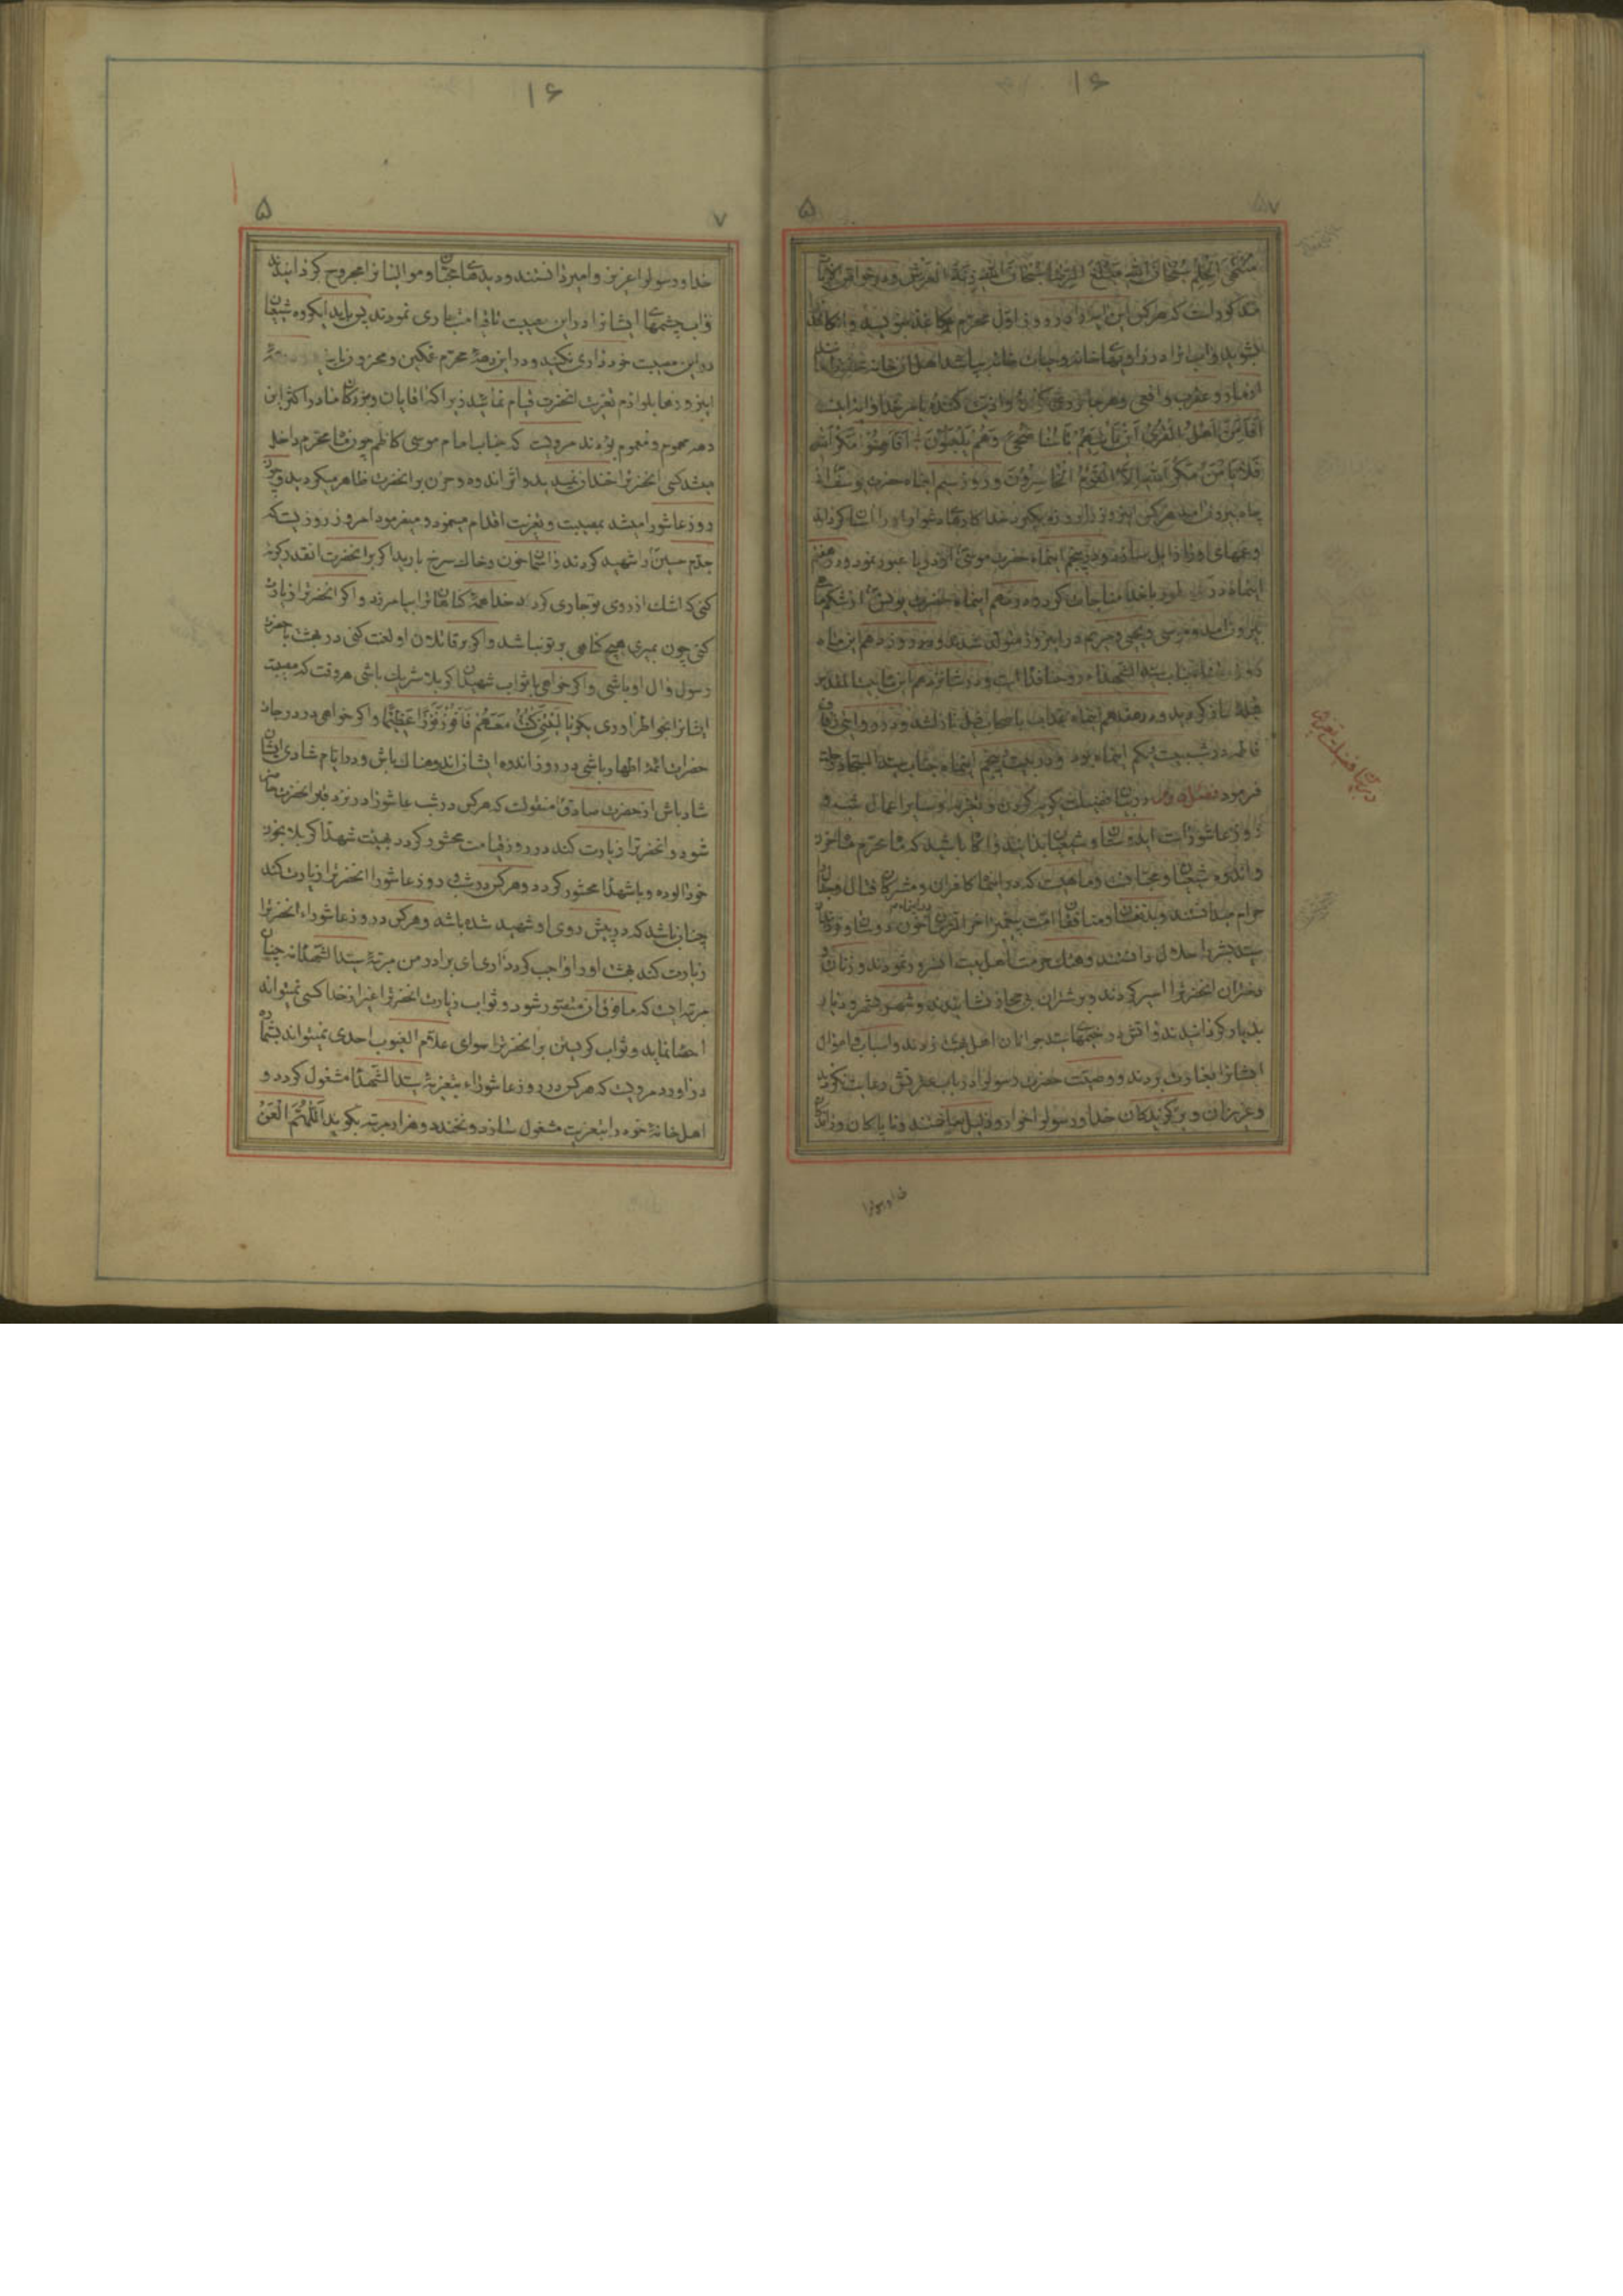 ۱۶
۵
۷
منتهی الحلم سبحان الله مبلغ الرضا سبحان الله زنة العرش و در خواص الآیات
مذکور است که هر کس این آیه را در روز اول محرم بر کاغذ بنویسد و آن کاغذ را
بشوید و آب آنرا در زاویهای خانه بپاشد اهل آن خانه
از مار و عقرب و افعی و هر جانور کننده بامر خدا و آیه اینست
أفأمن أهل القرى أن يأتيهم بأسنا ضحى وهم يلعبون أفأمنوا مكر الله
فلا يأمن مكر الله إلا القوم الخاسرون و روز سیم اینماه حضرت یوسف از
چاه بیرون آمد هر کس اینروز را روزه بگیرد خدا کارهای دشوار او را آسان گرداند
و غمهای او را زایل سازد و در پنجم اینماه حضرت موسی از دریا عبور نمود و در هفتم
اینماه در طور با خدا مناجات کرد و در نهم اینماه حضرت یونس از شکم ماهی
بیرون آمد و موسی و یحیی و مریم در اینروز متولد شدند و روز دهم این ماه
روز سید الشهداء روحنا فداه است و در شانزدهم این ماه بیت المقدس
قبله در هفدهم اینماه عذاب باصحاب فیل نازل شد و
فاطمه در شب بیست یکم اینماه بود و در بیست پنجم اینماه جناب سید السجاد رحلت
فرمود در بیان فضیلت گریه کردن و تعزیه و سایر اعمال شب و
روز عاشورا است ای دوستان و شیعیان بدانید و آگاه باشید که ماه محرم ماه حزن
و اندوه شیعیان و محبان است و ماهیست که در اینماه کافران و مشرکان قتال و جدال
حرام میدانستند و منافقان امت پیغمبر آخر الزمان در این ماه خون
سید بشر را حلال دانستند و هتک حرمت اهل بیت آنسرور نمودند و زنان و
دختران آنحضرترا اسیر کردند و بر شتران بی محمل نشانیدند و شهر بشهر و دیار
بدیار گردانیدند و آتش در خیمهای سید جوانان اهل بهشت زدند و اسباب و اموال
ایشانرا بغارت بردند و وصیت حضرت رسولرا در باب عترتش رعایت نکردند
و عزیزان و برگزیدکان خدا و رسولرا خوار و ذلیل ساختند و ناپاکان
در بیان فضیلت
خدا و رسولرا
۱۶
۵
۷
خدا و رسولرا عزیز و امیر دانستند و دیدهای محبان و موالیانرا مجروح کردانیدند
و آب چشمهای ایشانرا در این مصیبت تا قیامت جاری نمودند پس باید ایگروه شیعیان
در این مصیبت خودداری نکنید و در این دهه محرم غمگین و محزون
اینروزها بلوازم تعزیت آنحضرت قیام نمائید زیرا که آقایان و بزرگان ما در اکثر این
دهه مهموم و مغموم بودند مرویست که جناب امام موسی کاظم چون ماه محرم داخل
میشد کسی آنحضرترا خندان نمیدید و اثر اندوه و حزن بر آنحضرت ظاهر میگردید و چون
روز عاشورا میشد بمصیبت و تعزیت اقدام مینمود و میفرمود امروز روزیست که
جدم حسین را شهید کردند و از آسمان خون و خاک سرخ بارید اگر بر آنحضرت انقدر گریه
کنی که اشک از روی تو جاری گردد خدا همه گناهانرا بیامرزد و اگر آنحضرترا زیارت
کنی چون بمیری هیچ گناهی بر تو نباشد و اگر بر قاتلان او لعنت کنی در بهشت با حضرت
رسول و آل او باشی و اگر خواهی با ثواب شهیدان کربلا شریک باشی هر وقت که مصیبت
ایشانرا بخواطر آوردی بگو يا ليتني كنت معهم فأفوز فوزا عظيما و اگر خواهی در درجات
حضرات ائمه اطهار باشی در روز اندوه ایشان اندوهناک باش و در ایام شادی ایشان
شاد باش از حضرت صادق منقولست که هر کس در شب عاشورا در نزد قبر آنحضرت حاضر
شود و آنحضرترا زیارت کند در روز قیامت محشور گردد بهیئت شهدا کربلا بخون
خود آلوده و با شهدا محشور گردد و هر کس در شب و روز عاشورا آنحضرترا زیارت کند
چنان باشد که در پیش روی او شهید شده باشد و هر کس در روز عاشوراء آنحضرترا
زیارت کند بهشت او را واجب گردد آری ای برادر من مرتبهٔ سید الشهداء نه چنان
مرتبه ایست که مافوق آن متصور شود و ثواب زیارت آنحضرترا غیر از خدا کسی نمیتواند
احصا نماید و ثواب گریستن بر آنحضرترا سوای علام الغیوب احدی نمیتواند بشماره
در آورد مرویست که هر کس در روز عاشوراء بتعزیهٔ سید الشهداء مشغول گردد و
اهل خانهٔ خود را بتعزیت مشغول سازد و نخندد و هزار مرتبه بگوید اللهم العن